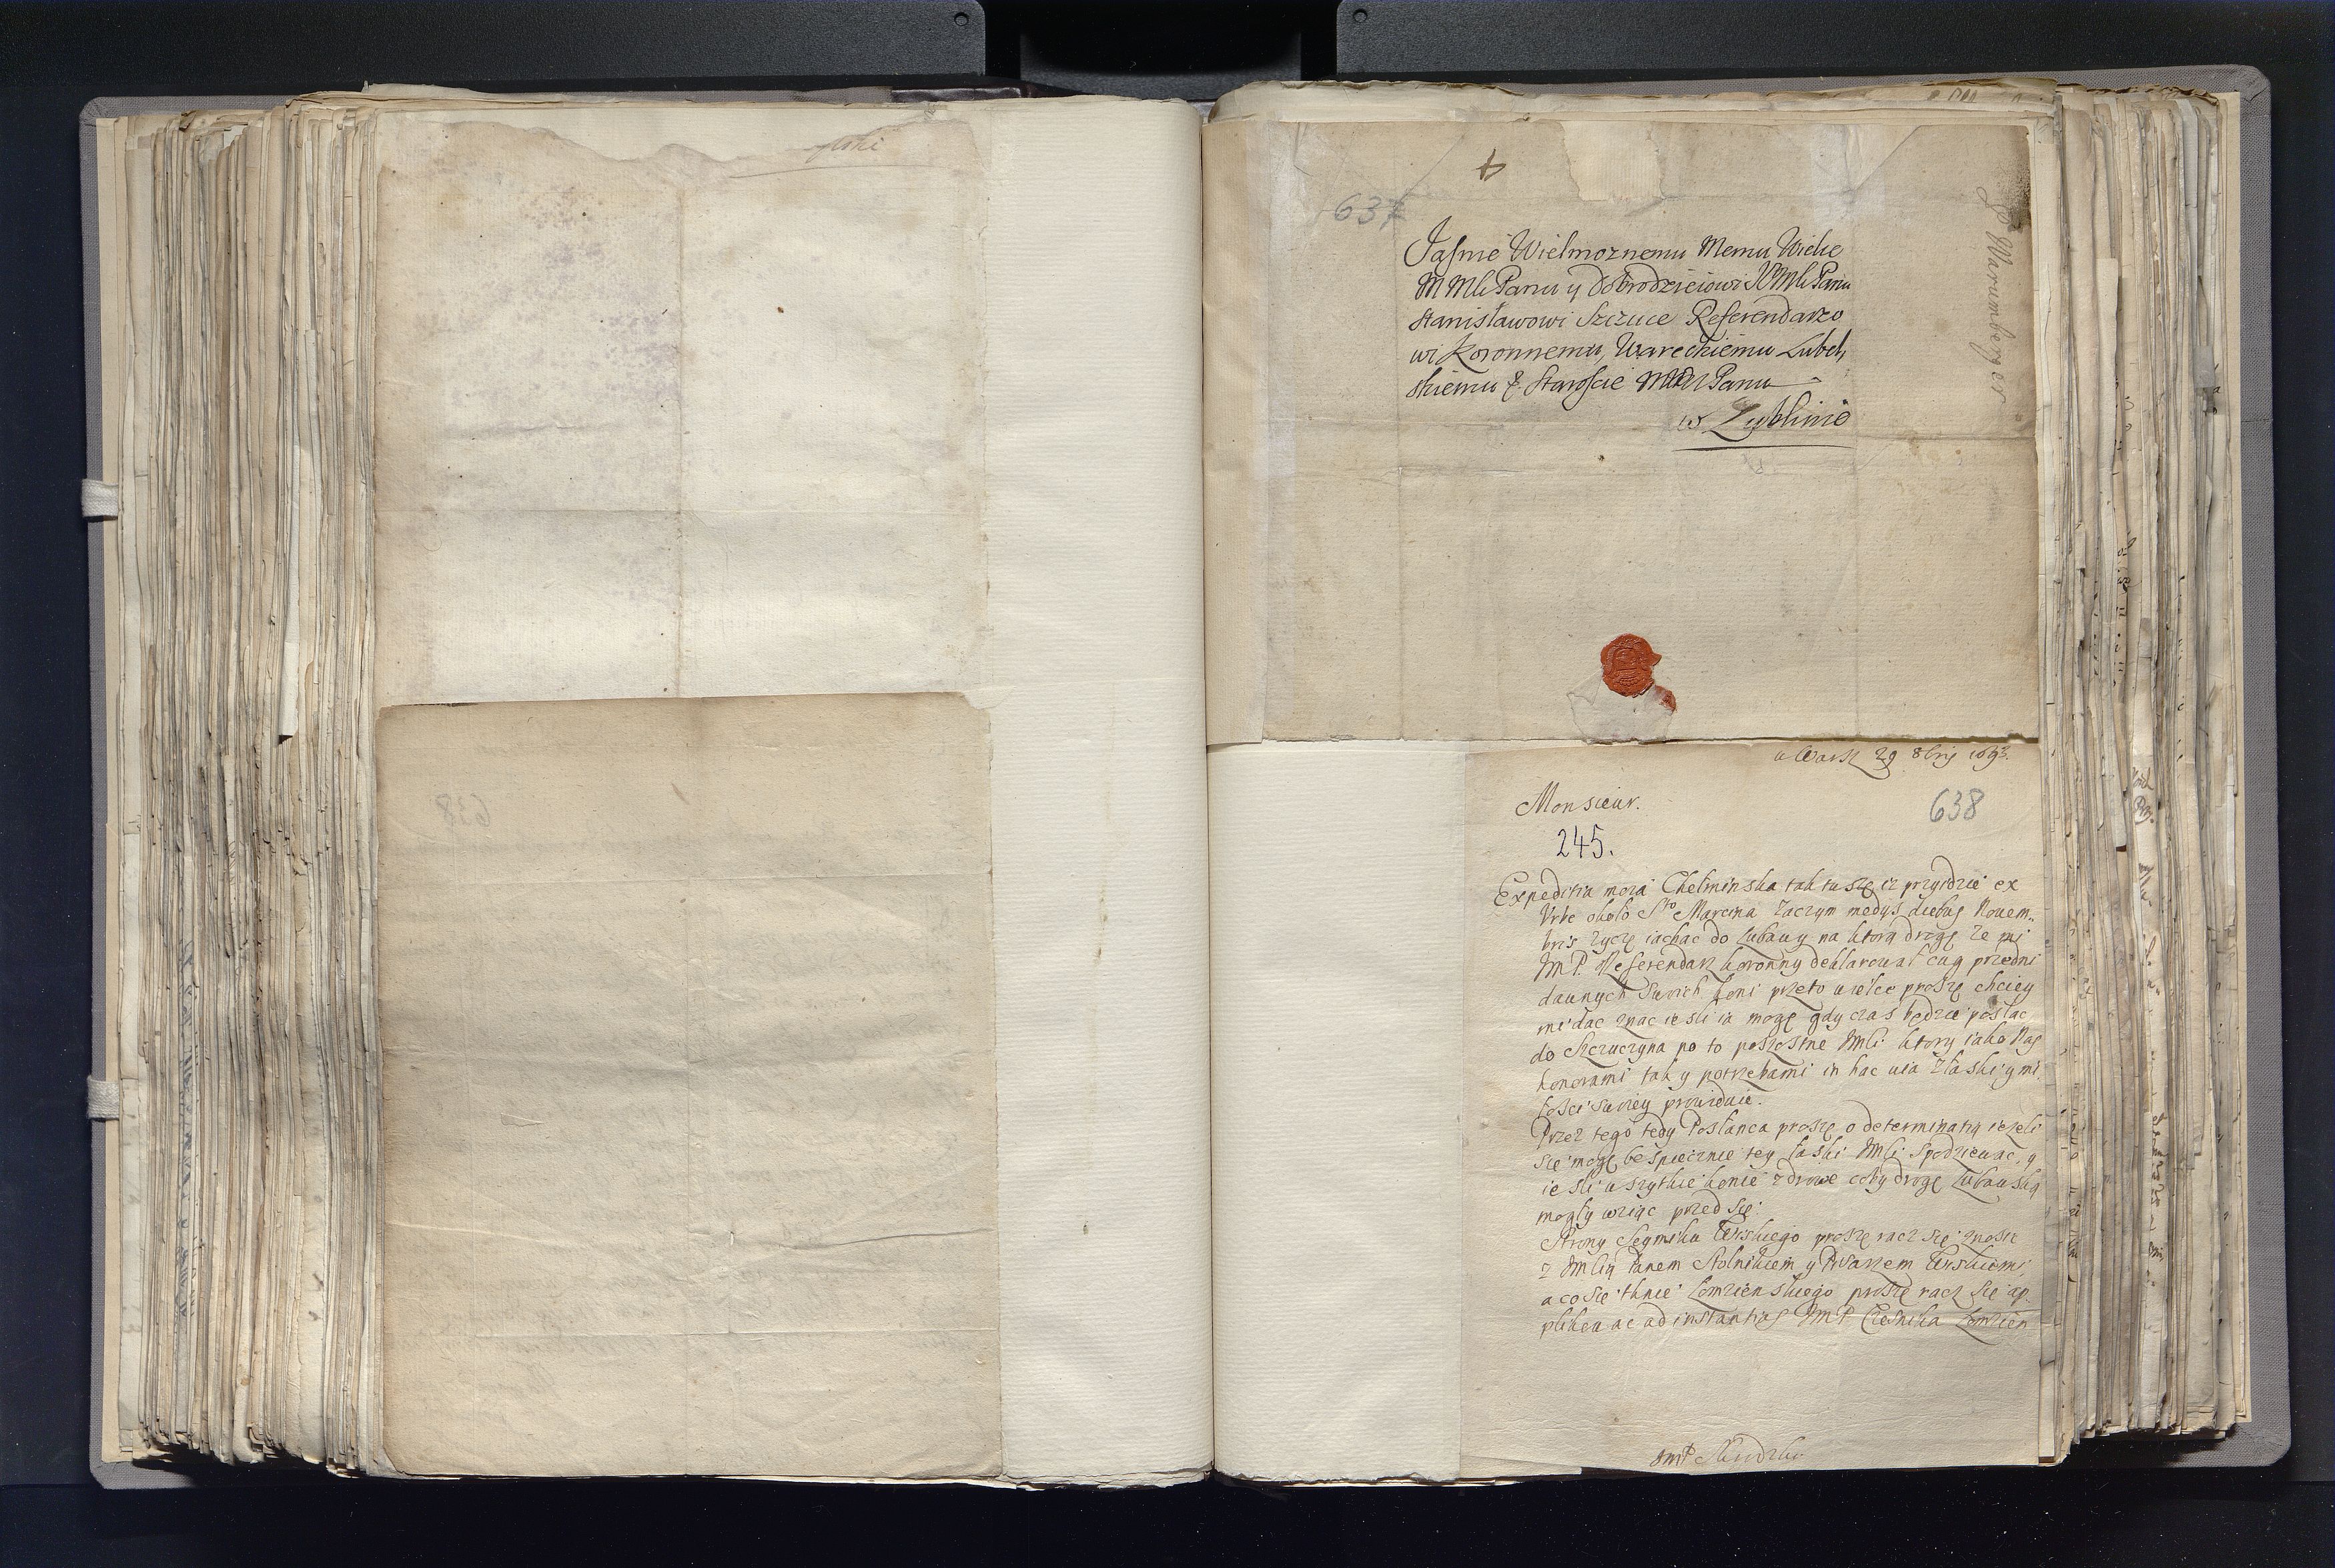 637
Jaśnie Wielmoznemu Memu Wielce
M Mli Panu y Dobrodzieiowi JMsci Panu
Stanisławowi Szczuce Referendarzo
wi Koronnemu, Wareckiemu Lubel,
skiemu &. Staroscie Panu
w Lublinie
Warumberger
w Warsz 29 8bris 1693.
Monsieur.
638
245.
Expeditia moia Chełminska tak tuszę iz przyidzie ex
Urbe około Sto Marcina zaczym medys diebus Novem„
bris zyczę iachac do Lubawy na ktorą drogę ze mi
JmP. Referendarz koronny deklarował cug przedni
dawnych swoich koni przeto wielce proszę chciey
mi dac znac iesli ia mogę gdy czas będzie posłac
do Szczuczyna po to poszostne Jmści ktory iako Nas
honorami tak y potrzebami in hac via z łaski y mi
łosci swoiey prowiduie.
Przez tego tedy Posłanca proszę o determinatią iezeli
się mogę bespiecznie tey łaski Jmści spodziewac, y
iesli wszytkie konie zdrowe coby drogę Lubawską
mogły wziąc przed się.
Strony Seymiku proszę racz się znosic
z Jmscią Panem Stolnikiem y Pisarzem
a co się tknie Łomzienskiego proszę racz się ap„
plikowac ad instantias JmP. Czesnika Łomzien